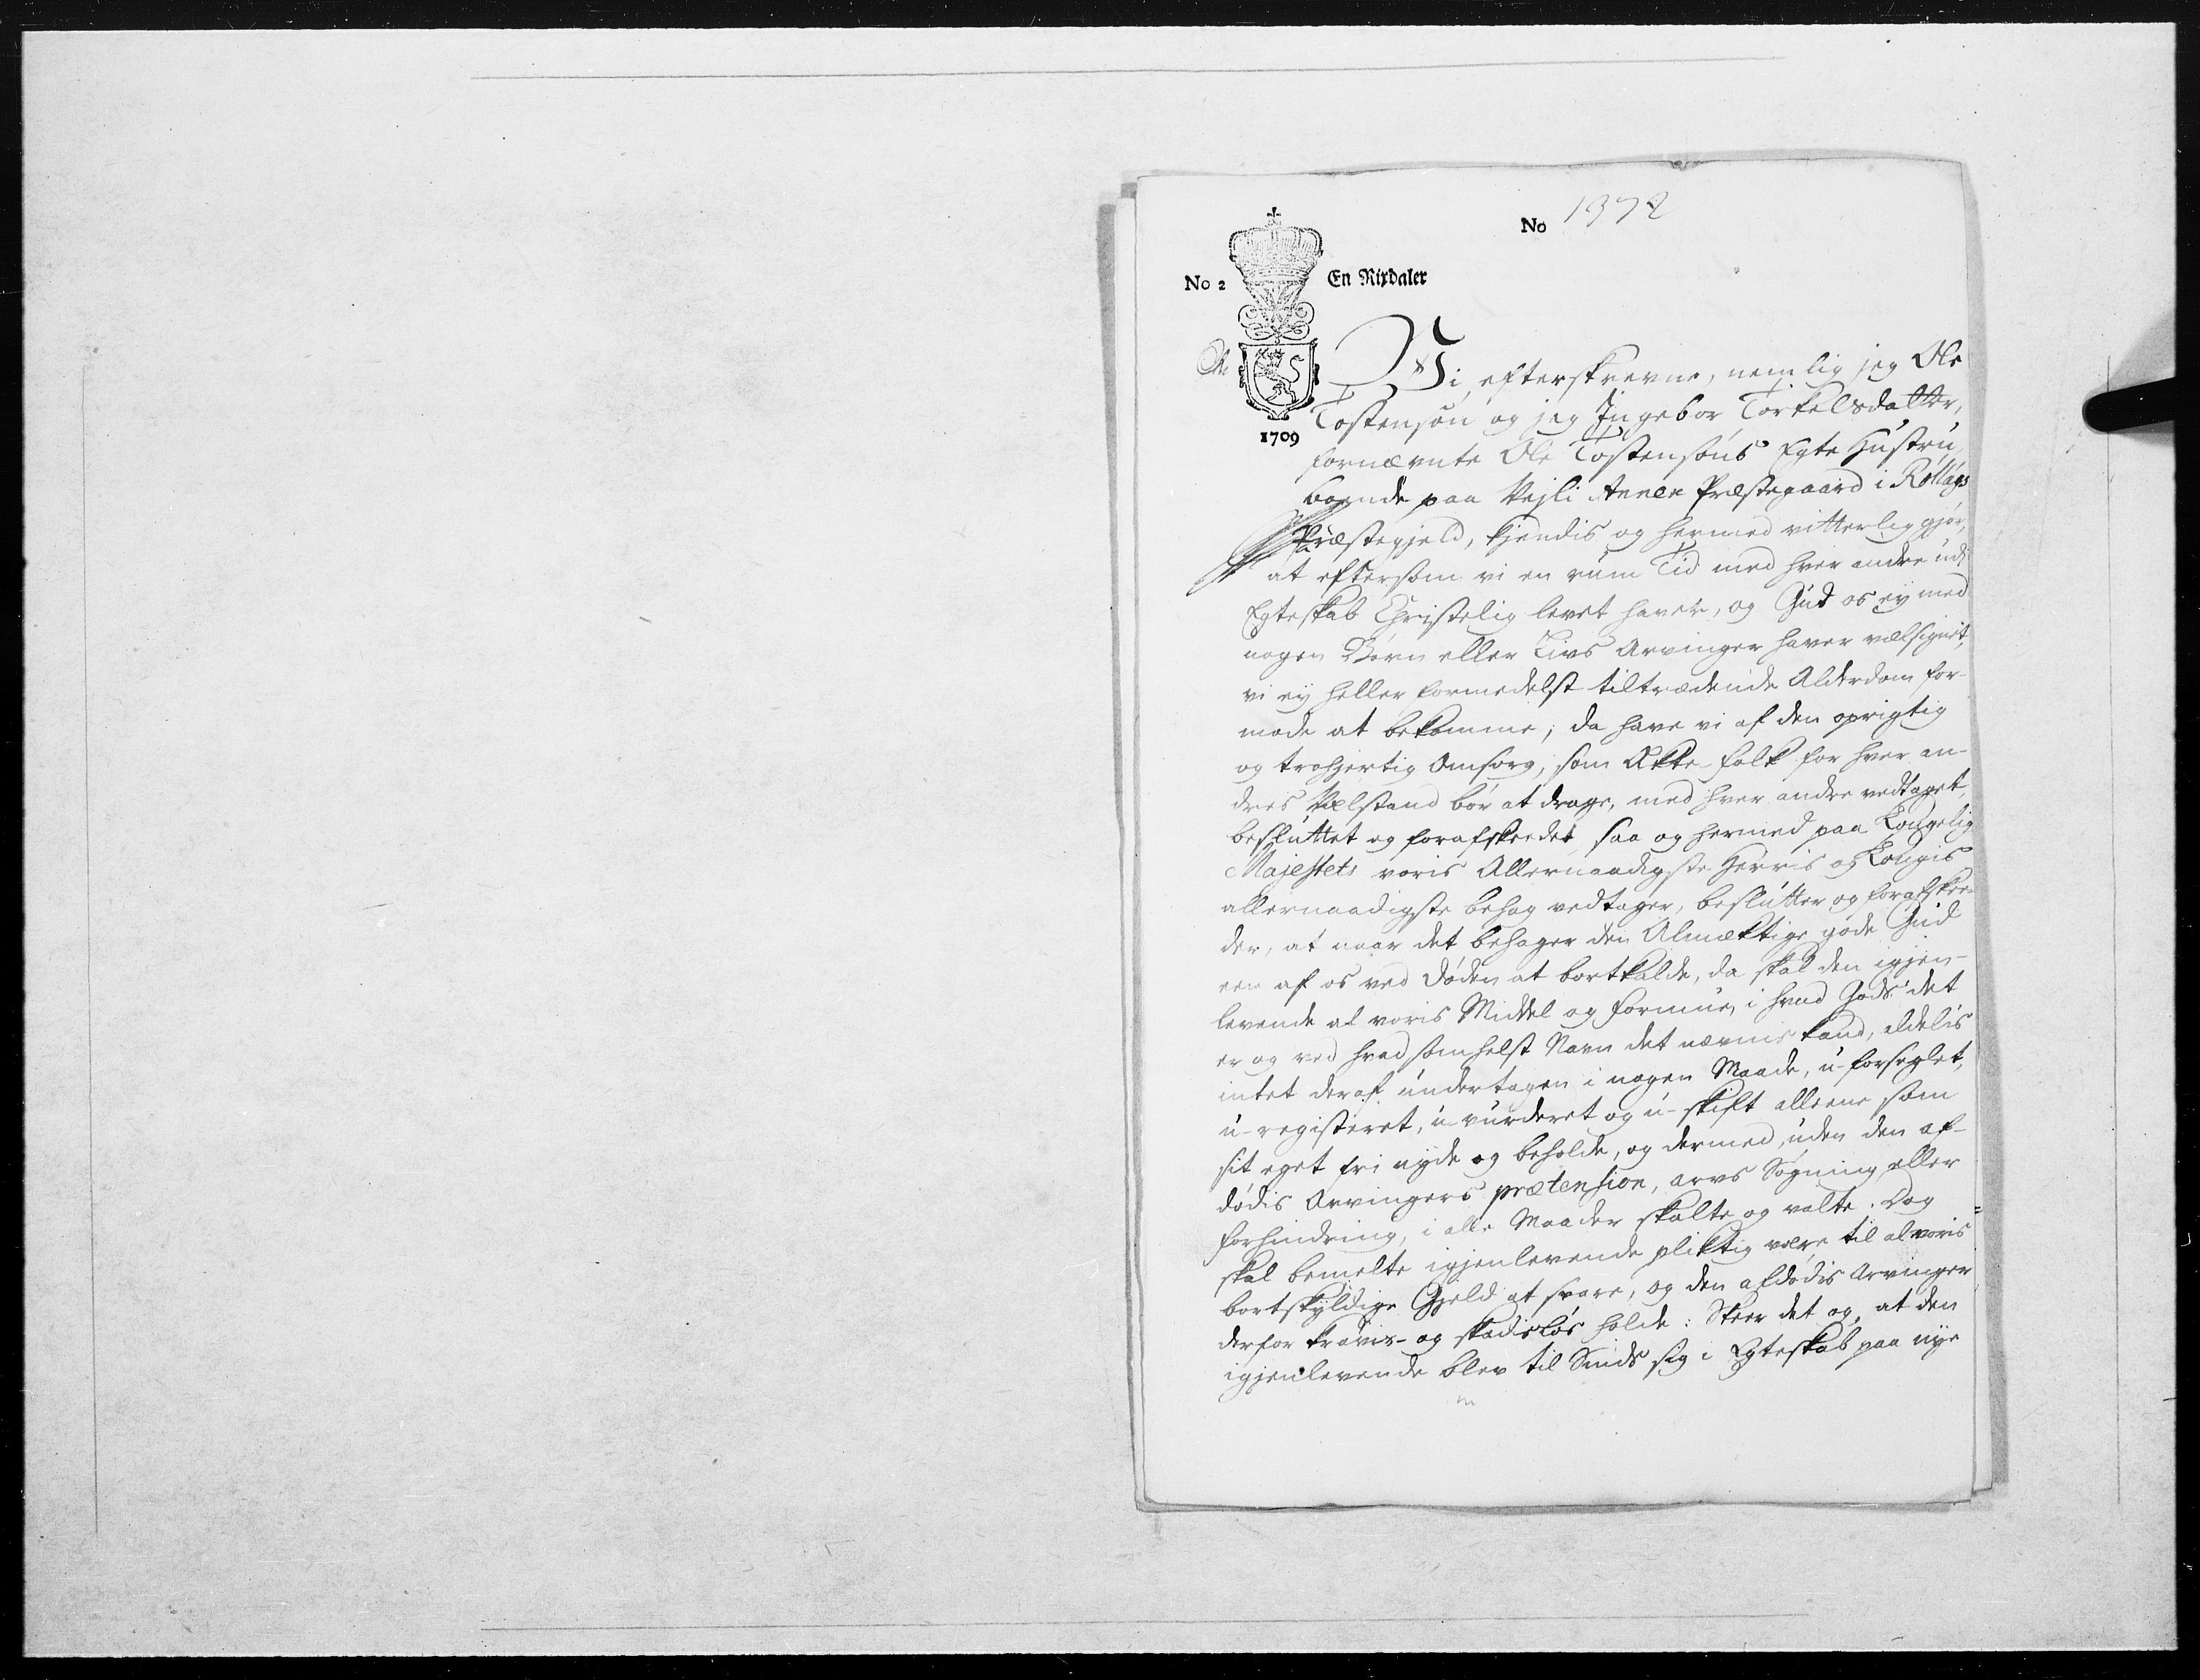 No 1372
No 2 En Rixdaler
1709
Vi efterskrevne, nemlig jeg Ole
Tostensøn og jeg Ingebor Torkelsdatter,
fornævnte Ole Tostensøns Egte Hustru
boende paa Vejli Annex Præstegaard i Rollags
Præstegjeld, kjendis og hermed vitterlig gjør,
at eftersom vi en rum Tid med hver andre udi
Egteskab Christelig levet haver, og Gud os ey med
nogen Børn eller Livs Arvinger haver velsignet,
vi ey heller formedelst tiltrædende Alderdom for-
mode at bekomme; da have vi af den oprigtig
og trohjertig Omsorg, som Ækte-folk for hver an-
dres Velstand bør at drage, med hver andre vedtaget,
besluttet og forafskeedet saa og hermed paa Kongelig
Majestets voris Allernaadigste Herris og Kongis
allernaadigste behag vedtager, beslutter og forafskee-
der, at naar det behager den Almæktige gode Gud
een af os ved Døden at bortkalde, da skal den igjen-
levende al voris Middel og formue, i hvad Gods det
er og ved hvad somhelst Navn det nævnis kand, aldelis
intet deraf undertagen i nogen Maade, u-forseglet,
u-registeret, u-vurderet og u-skift alleene som
sit eget fri nyde og beholde, og dermed, uden den af-
dødis Arvingers prætension, arvs Søgning eller
forhindring, i alle Maader skalte og valte. Dog
skal bemelte igjenlevende pliktig være til al voris
bortskyldige Gjeld at svare, og den afdødis Arvinger
derfor kravis- og skadisløs holde: Skeer det og, at den
igjenlevende blev til Sinds sig i Egteskab paa nye